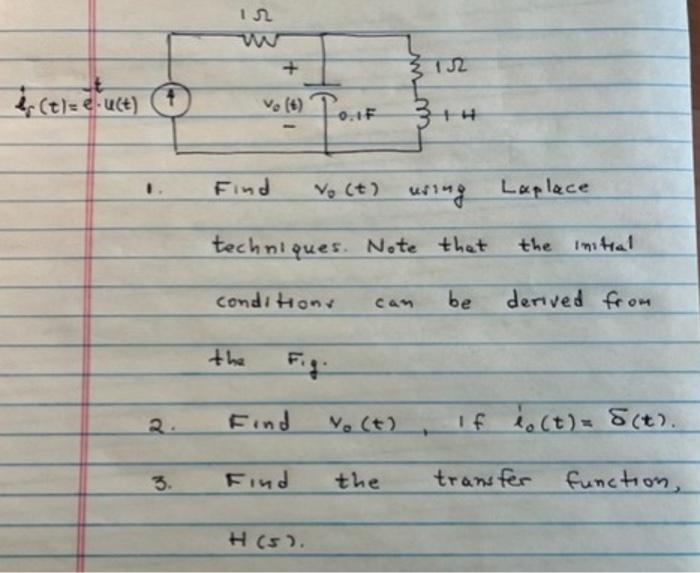 1Ω
+
1Ω
i_s(t)=e^-t·u(t)
v₀(t)
0.1F
1H
−
1. Find v₀(t) using Laplace
techniques. Note that the initial
conditions can be derived from
the Fig.
2. Find v₀(t), if i₀(t)= δ(t).
3. Find the transfer function,
H(s).